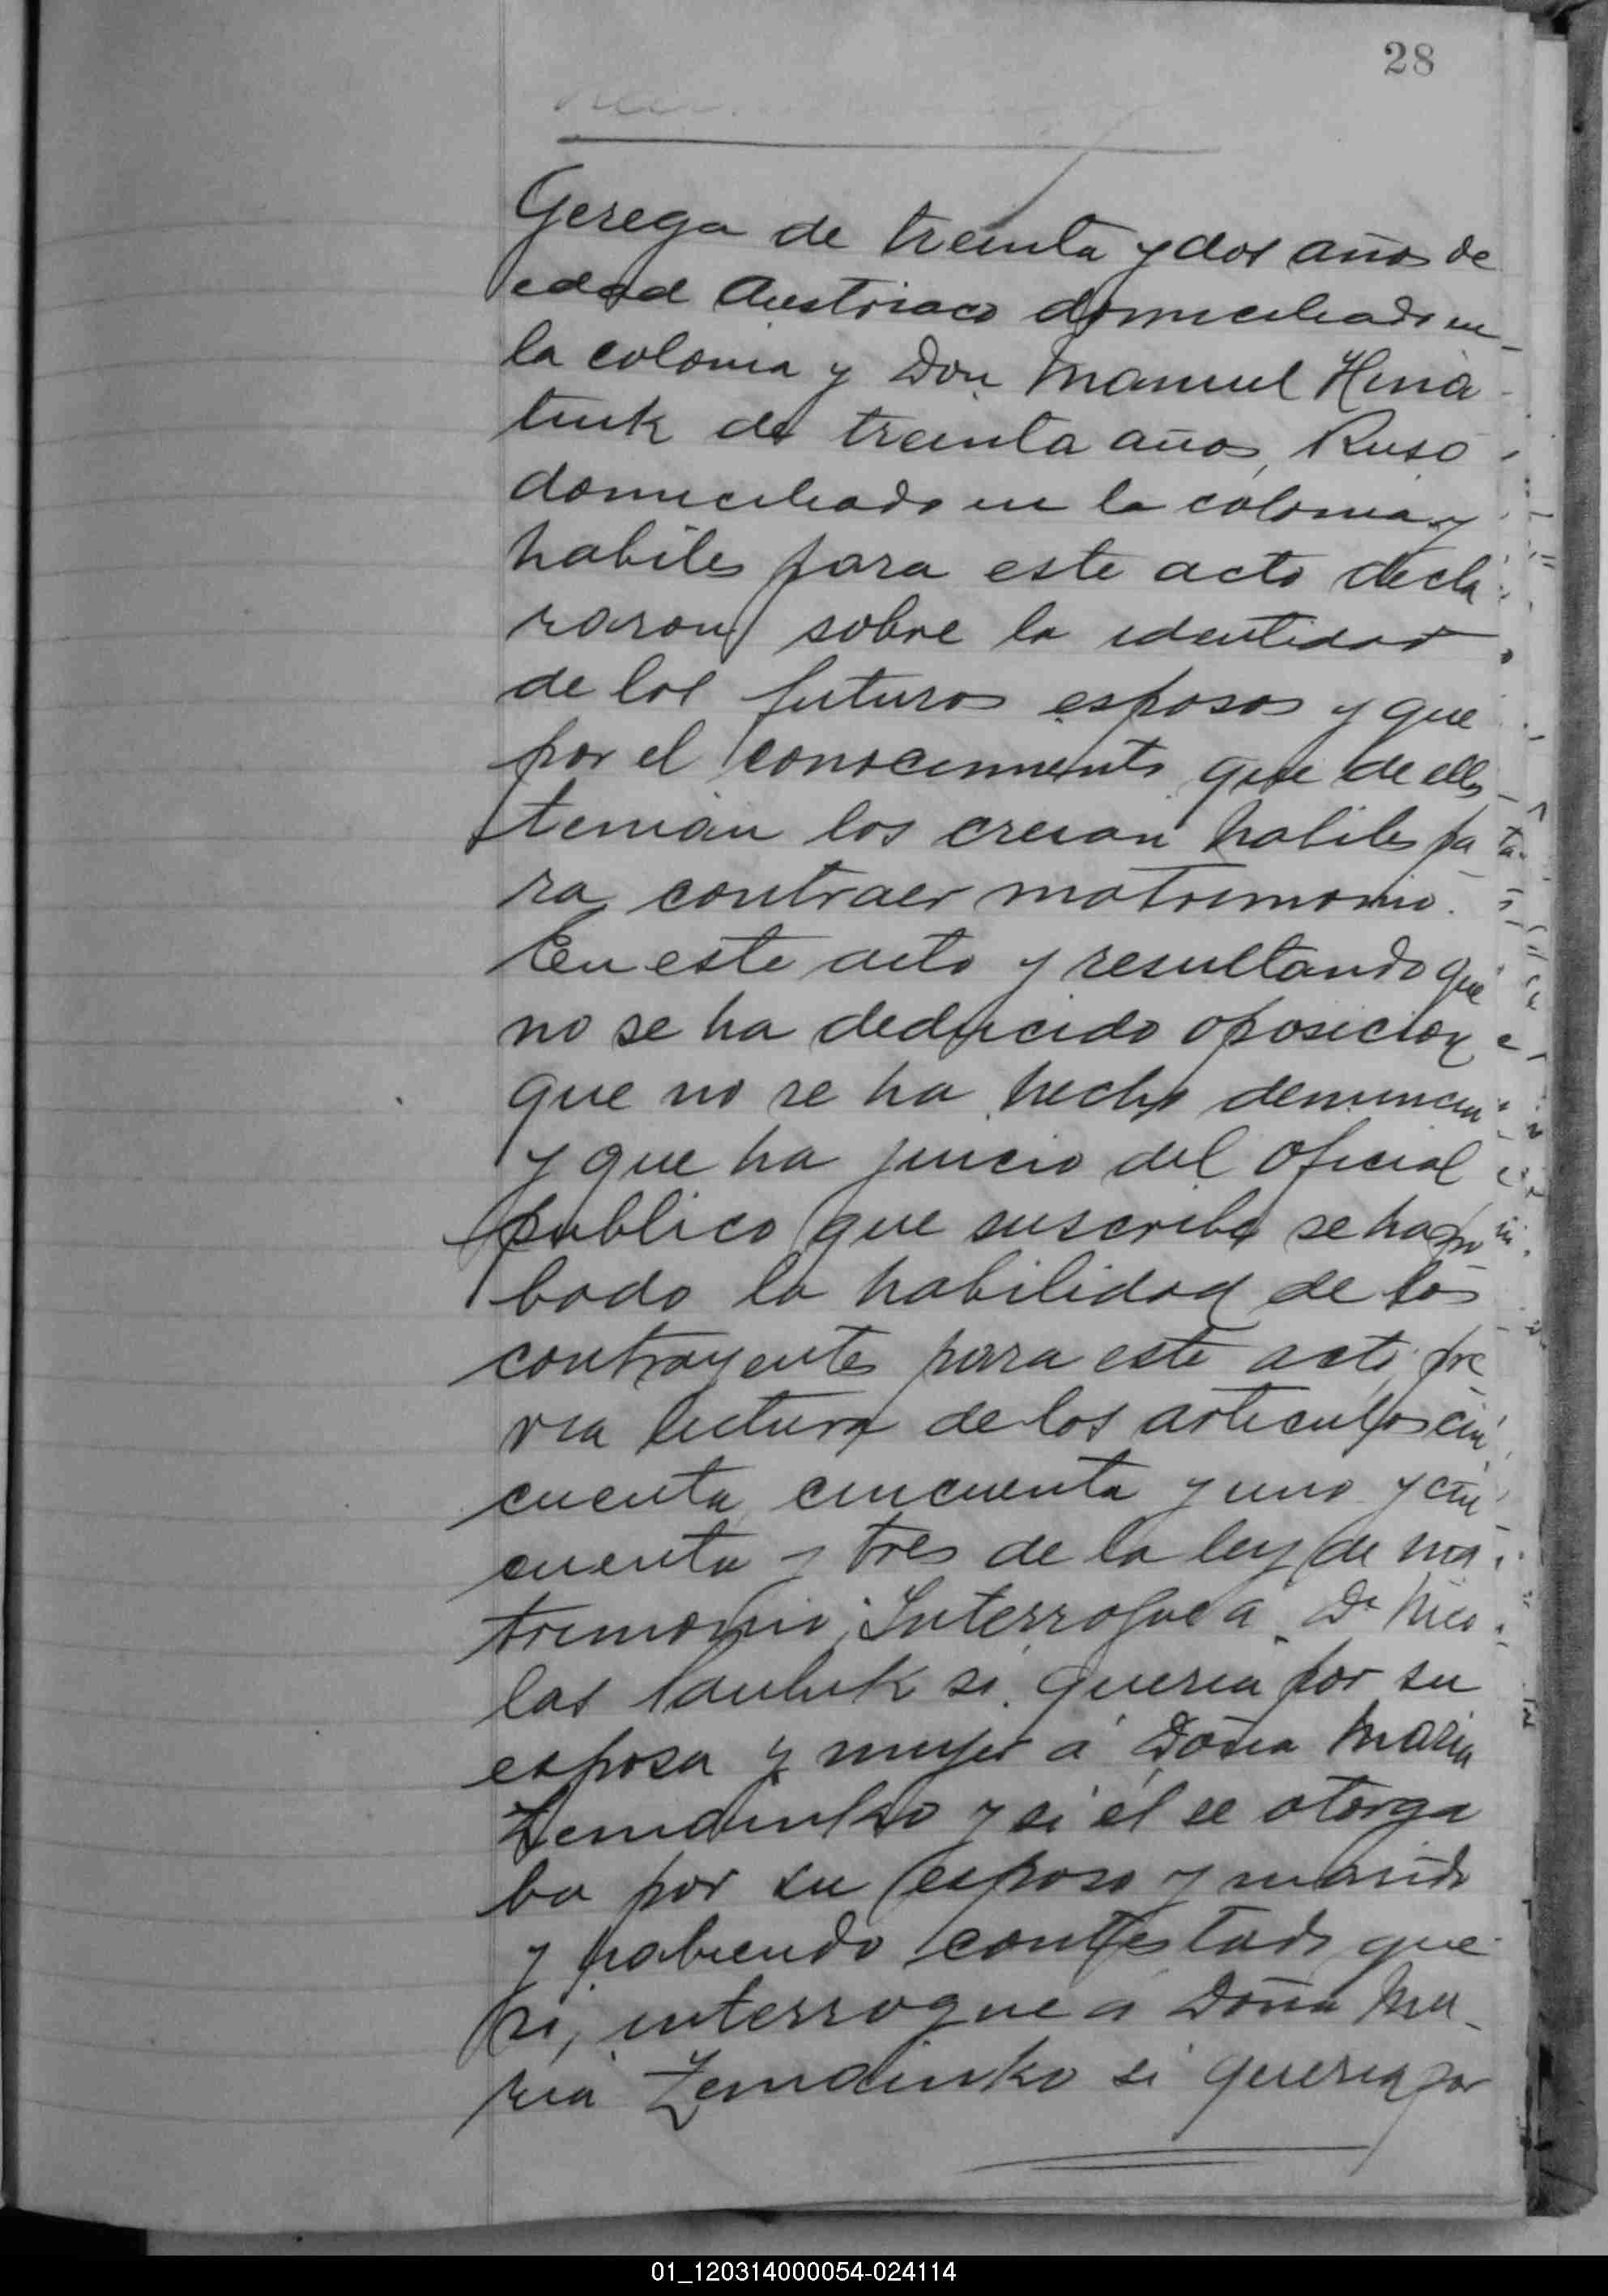 28
Gerega de treinta y dos años de
edad Austriaco domiciliado en
la colonia y Don Manuel Hina
tiuk de treinta años, Ruso
domiciliado en la colonia y
habiles para este acto decla
raron sobre la identidad
de los futuros esposos y que
por el conocimiento que de ellos
tenian los creian habiles pa
ra contraer matrimonio.
En este acto y resultando que
no se ha deducido oposicion
que no se ha hecho denuncia
y que ha juicio del oficial
publico que suscribe se ha pro
bado la habilidad de los
contrayentes para este acto, pre
via lectura de los articulos cin
cuenta, cincuenta y uno y cin
cuenta y tres de la ley de ma
trimonio; Interrogue a Dn Nico
las si queria por su
esposa y mujer á Doña Maria
Zemainko y si él se otorga
ba por su esposo y marido
y habiendo contestado que
si, interrogue a Doña Ma
ria Zemainko si queria por
01_120314000054-024114